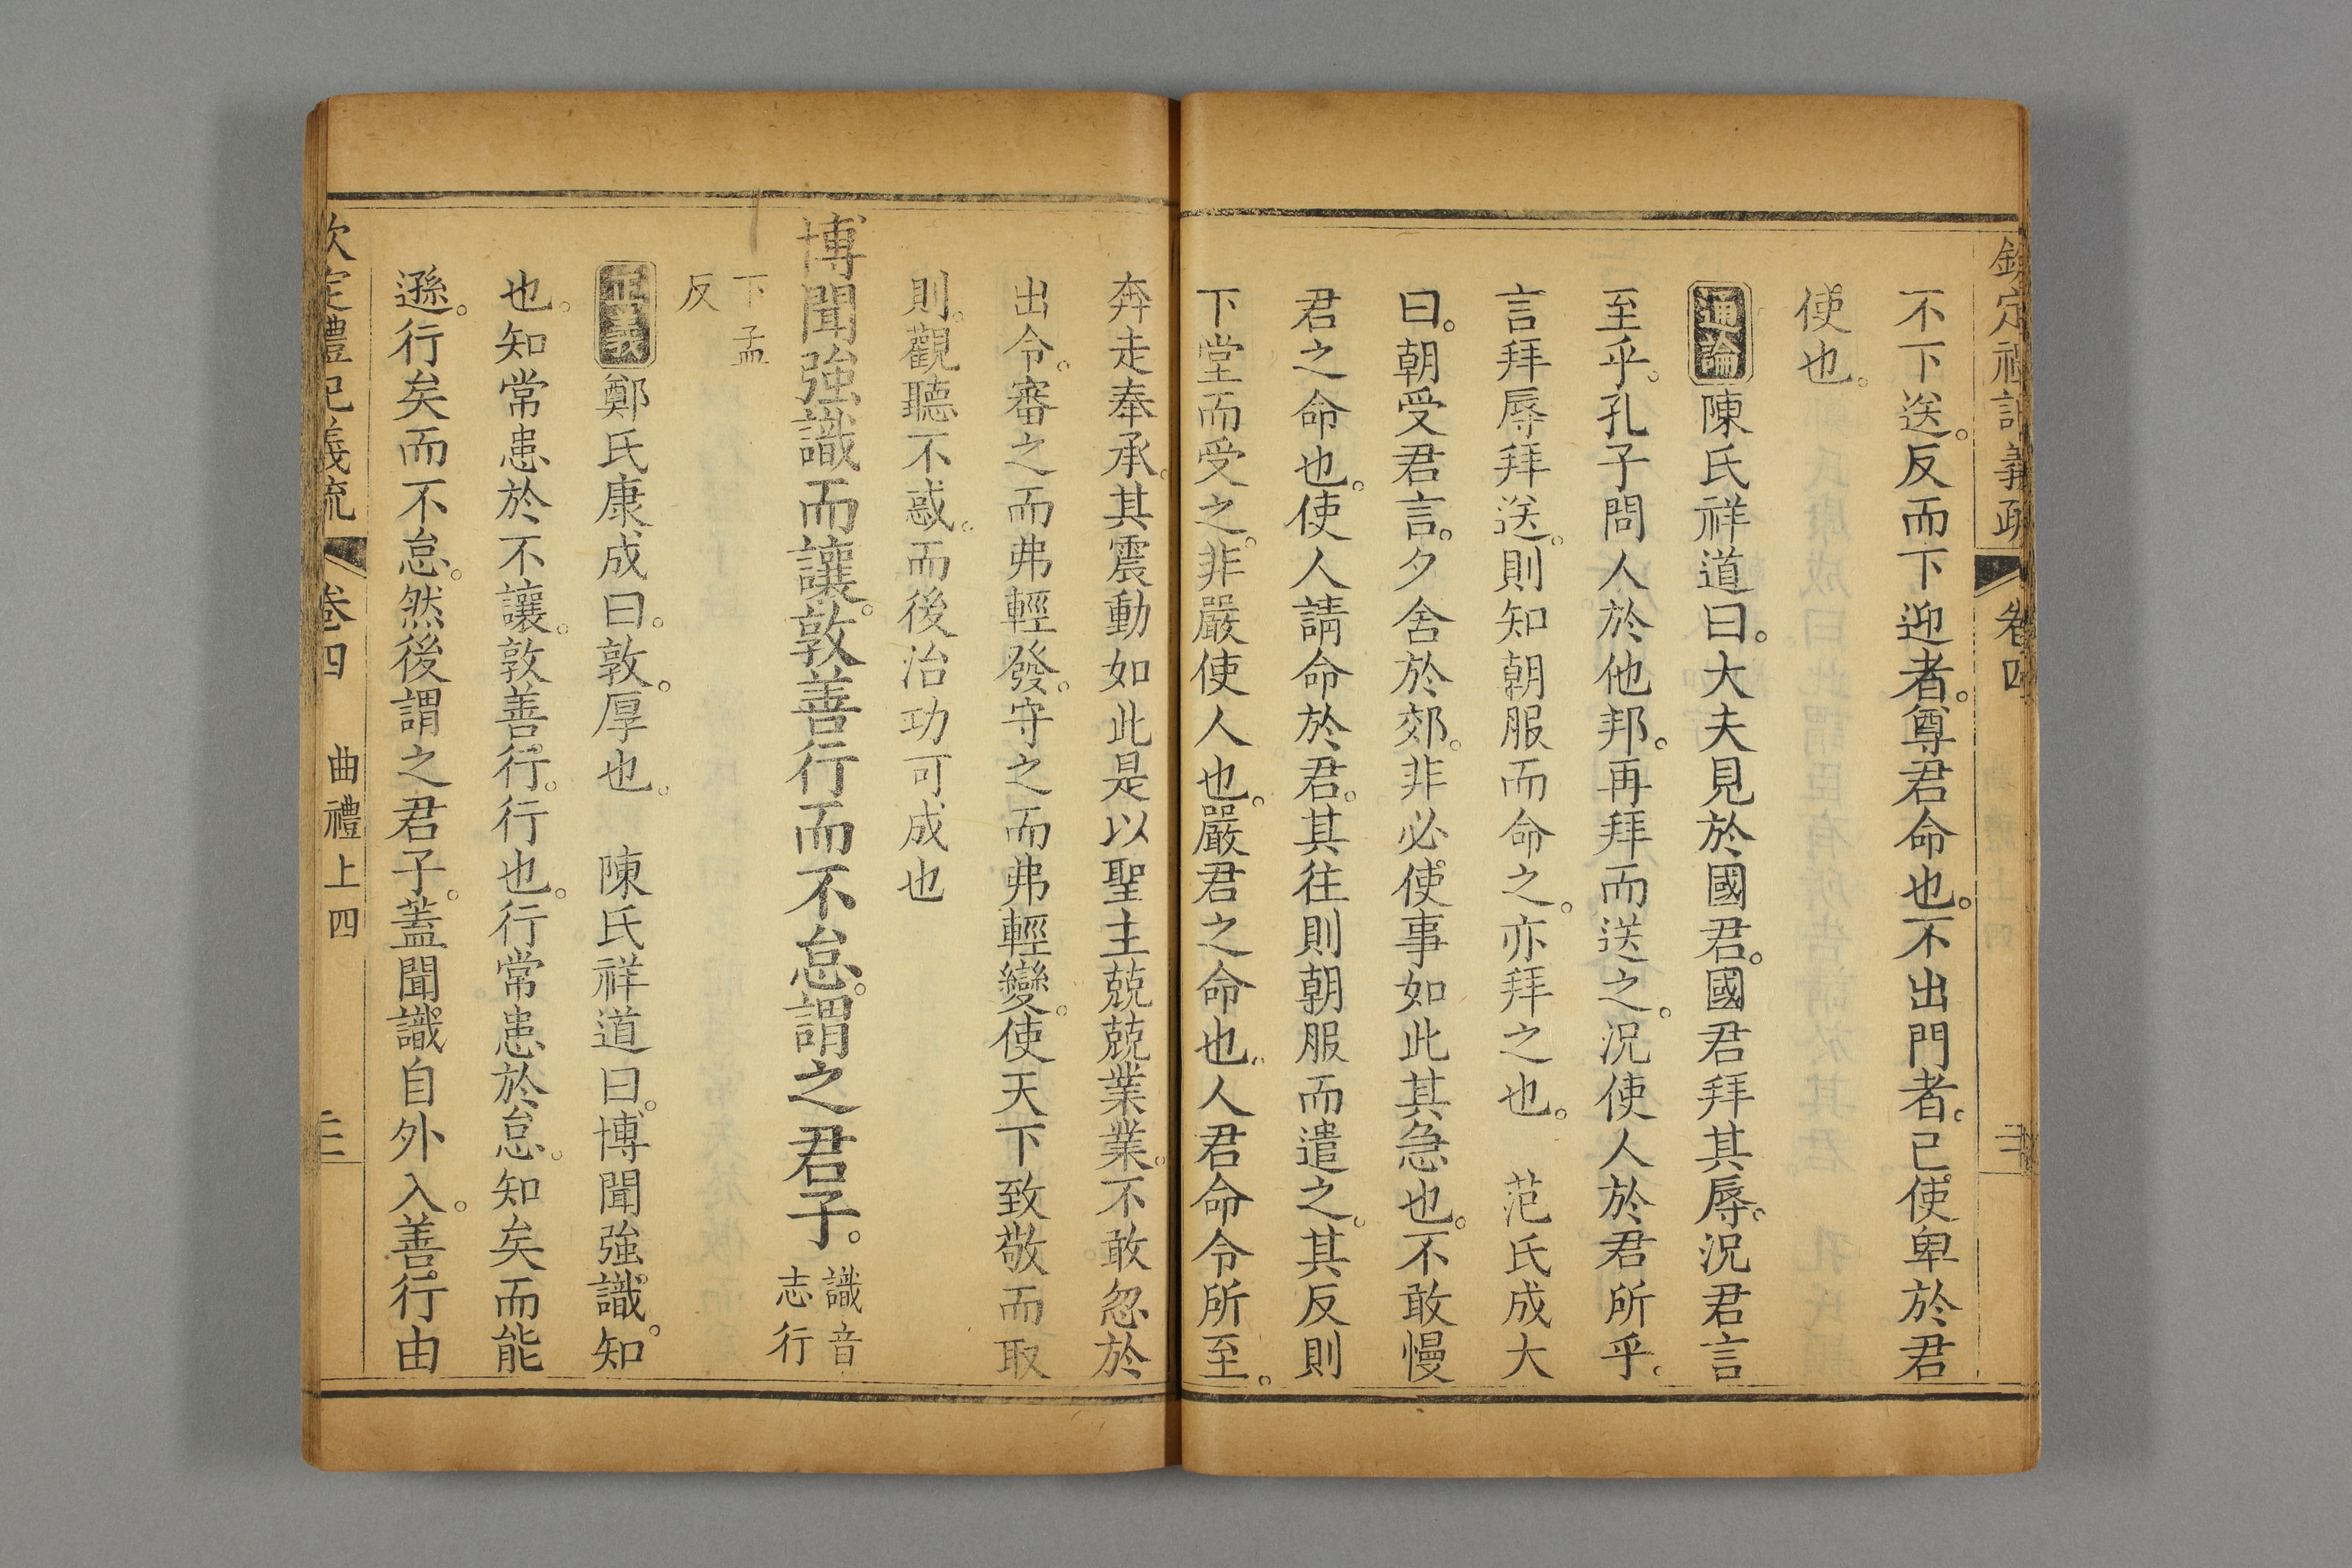 不下送。反而下迎者。尊君命也。不出門者。已使卑於君
使也。
通論陳氏祥道曰。大夫見於國君。國君拜其辱。況君言
至乎。孔子問人於他邦。再拜而送之。況使人於君所乎。
言拜辱拜送。則知朝服而命之。亦拜之也。 范氏成大
曰。朝受君言。夕舍於郊。非必使事如此其急也。不敢慢
君之命也。使人請命於君。其往則朝服而遣之。其反則
下堂而受之。非嚴使人也。嚴君之命也。人君命令所至。
奔走奉承。其震動如此是以聖主兢兢業業。不敢忽於
出令。審之而弗輕發。守之而弗輕變。使天下致敬而取
則。觀聽不惑。而後治功可成也
博聞強識而讓。敦善行而不怠。謂之君子。
識音
志行
下孟
反
正義鄭氏康成曰。敦。厚也。 陳氏祥道曰。博聞強識。知
也。知常患於不讓。敦善行。行也。行常患於怠。知矣而能
遜。行矣而不怠。然後謂之君子。蓋聞識自外入。善行由
欽定禮記義疏 卷四 曲禮上四